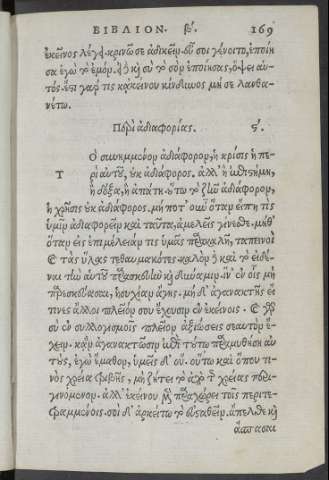 ΒΙΒΛΙΟΝ. β'. 169
ἐκεῖνος λέγῃ, κρινῶ σε ἀδικεῖν. εὖ σοι γένοιτο, ἐποίη
σα ἐγὼ τὸ ἐμόν. εἰ δὲ καὶ σὺ τὸ σὸν ἐποίησας, ὄψει αὐ
τός. ἔστι γάρ τις κἀκείνου κίνδυνος μή σε λανθα-
νέτω.
Περὶ ἀδιαφορίας. ς'.
Τὸ συνημμένον ἀδιάφορον, ἡ κρίσις ἡ πε-
ρὶ αὐτοῦ, οὐκ ἀδιάφορος. ἀλλ' ἢ ἐπιστήμη,
ἢ δόξα, ἢ ἀπάτη. οὕτω τὸ ζῆν ἀδιάφορον,
ἡ χρῆσις οὐκ ἀδιάφορος. μή ποτ' οὖν ὅταν εἴπῃ τις
ὑμῖν ἀδιαφορεῖν καὶ ταῦτα, ἀμελεῖς γίνεσθε. μήθ'
ὅταν εἰς ἐπιμέλειάν τις ὑμᾶς παρακαλῇ, ταπεινοὶ
καὶ τὰς ὕλας τεθαυμακότες. καλὸν δὲ καὶ τὸ εἰδέ-
ναι τὴν αὑτοῦ παρασκευὴν καὶ δύναμιν. ἵν' ἐν οἷς μὴ
παρεσκεύασαι, ἡσυχίαν ἄγῃς. μηδ' ἀγανακτῇς εἴ
τινες ἄλλοι πλεῖόν σου ἔχουσιν ἐν ἐκείνοις. καὶ γὰρ
σὺ ἐν συλλογισμοῖς πλεῖον ἀξιώσεις σεαυτὸν ἔ-
χειν. κἂν ἀγανακτῶσιν ἐπὶ τούτῳ παραμυθήσῃ αὐ
τούς, ἐγὼ ἔμαθον, ὑμεῖς δ' οὔ. οὕτω καὶ ὅπου τι-
νὸς χρεία τριβῆς, μὴ ζήτει τὸ ἀπὸ τῆς χρείας περι-
γινόμενον. ἀλλ' ἐκείνου μὲν παραχώρει τοῖς περιτε-
γραμμένοις. σοὶ δ' ἀρκείτω τὸ εὐσταθεῖν. ἄπελθε καὶ
ἄσπασαι